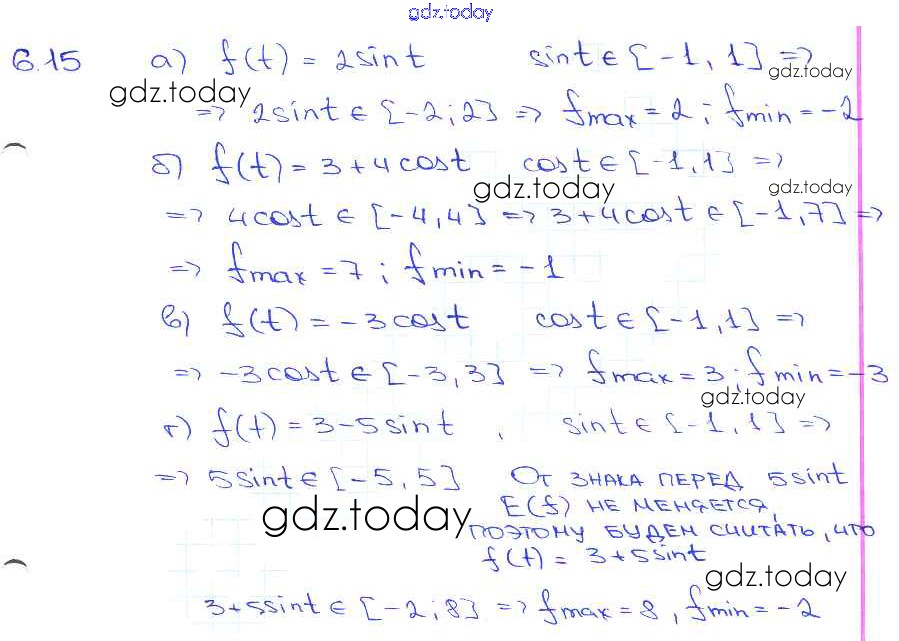 gdz.today
6.15 а) f(t) = 2sint sint ∈ [-1, 1] =>
gdz.today
gdz.today
=> 2sint ∈ [-2; 2] => fmax = 2; fmin = -2
б) f(t) = 3 + 4cost cost ∈ [-1, 1] =>
gdz.today
gdz.today
=> 4cost ∈ [-4, 4] => 3 + 4cost ∈ [-1, 7] =>
=> fmax = 7; fmin = -1
в) f(t) = -3cost cost ∈ [-1, 1] =>
=> -3cost ∈ [-3, 3] => fmax = 3; fmin = -3
gdz.today
г) f(t) = 3 - 5sint , sint ∈ [-1, 1] =>
=> 5sint ∈ [-5, 5] От ЗНАКА ПЕРЕД 5sint
E(f) НЕ МЕНЯЕТСЯ,
gdz.today
ПОЭТОМУ БУДЕМ СЧИТАТЬ, ЧТО
f(t) = 3 + 5sint
gdz.today
3 + 5sint ∈ [-2; 8] => fmax = 8, fmin = -2